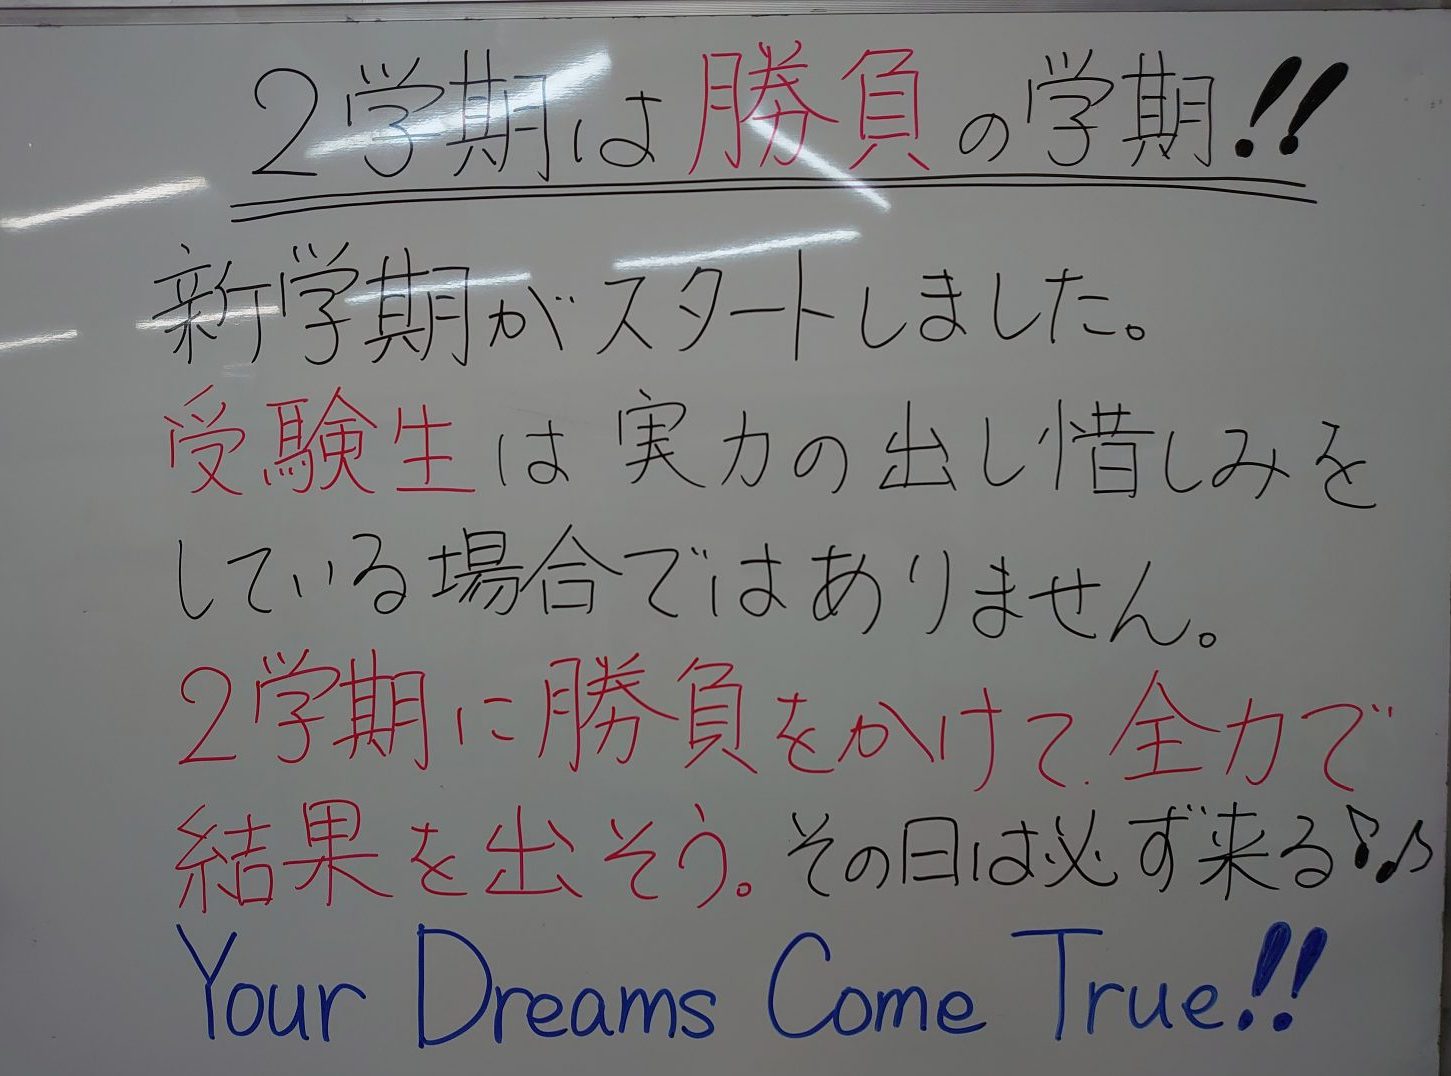 2学期は勝負の学期!!
新学期がスタートしました。
受験生は実力の出し惜しみを
している場合ではありません。
2学期に勝負をかけて、全力で
結果を出そう。その日は必ず来る♪♪
Your Dreams Come True!!